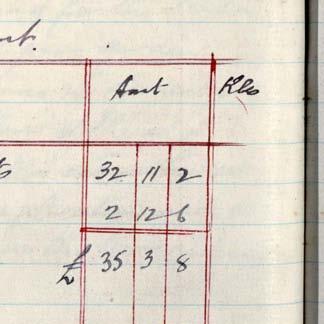 Amt
32 11 2
2 12 6
£ 35 3 8